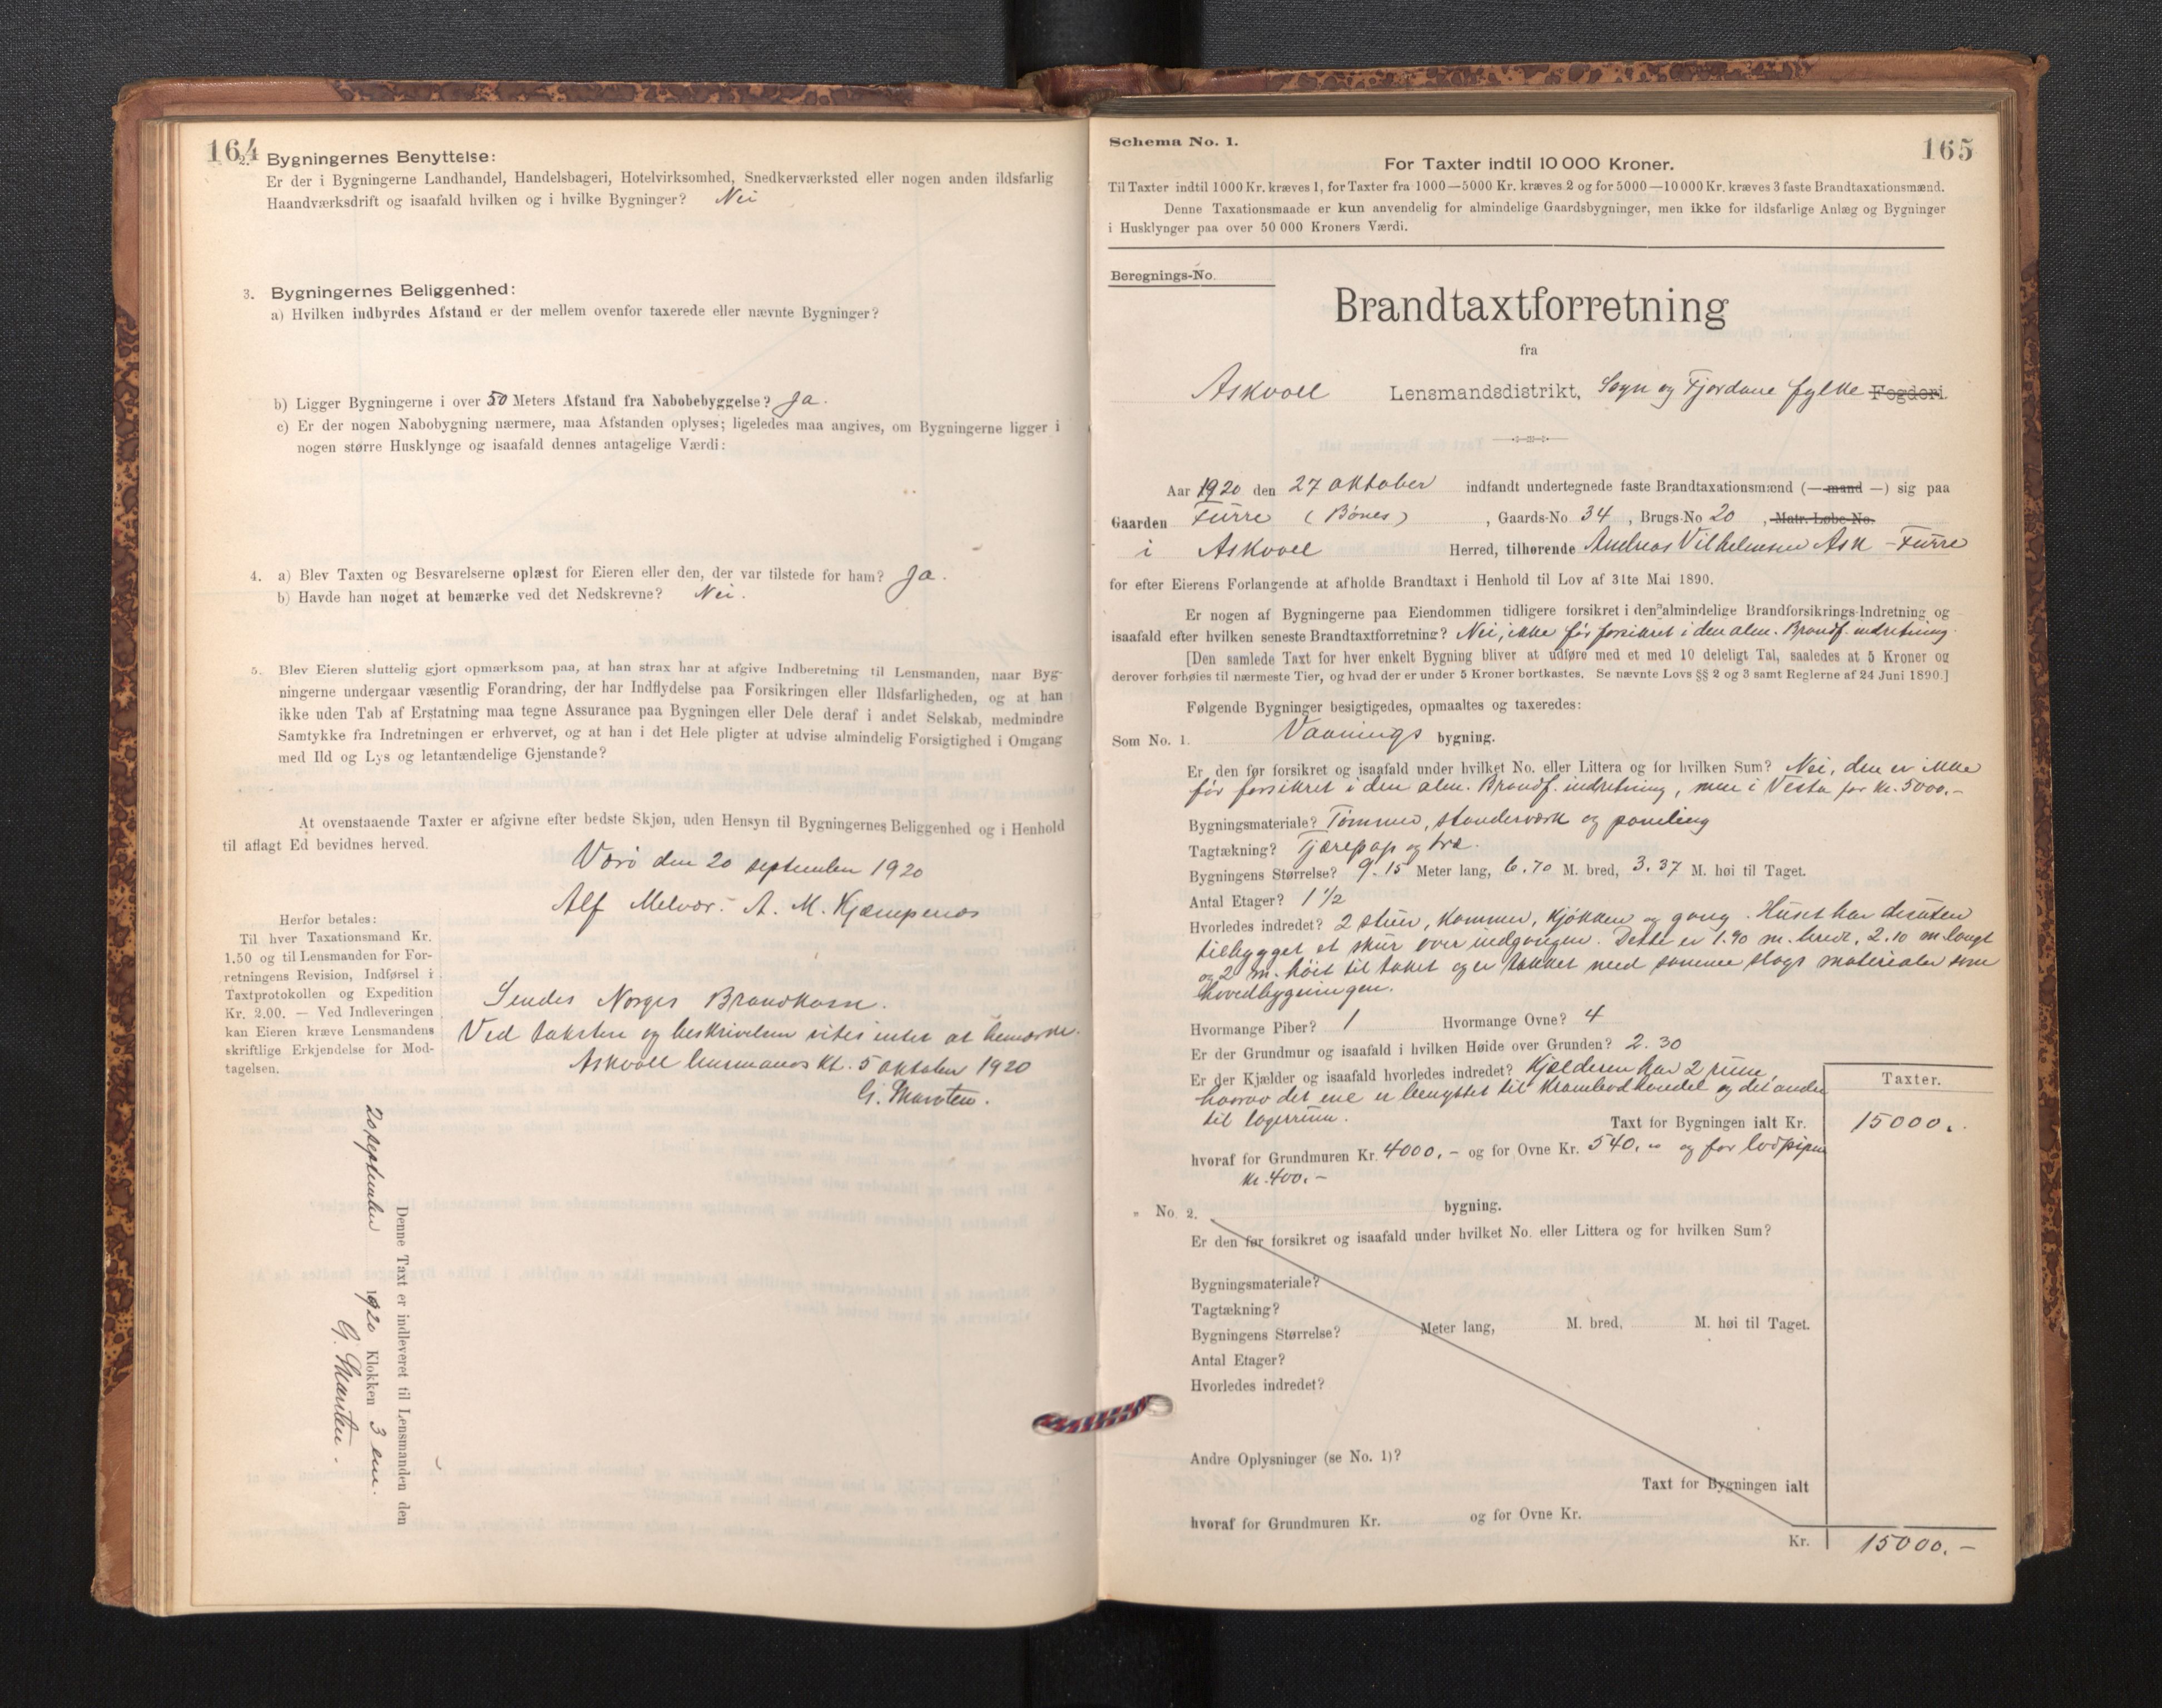 164
2. Bygningernes Benyttelse:
Er der i Bygningerne Landhandel, Handelsbageri, Hotelvirksomhed, Snedkerværksted eller nogen anden ildsfarlig
Haandværksdrift og isaafald hvilken og i hvilke Bygninger? Nei
3. Bygningernes Beliggenhed:
a) Hvilken indbyrdes Afstand er der mellem ovenfor taxerede eller nævnte Bygninger?
b) Ligger Bygningerne i over 50 Meters Afstand fra Nabobebyggelse? Ja.
c) Er der nogen Nabobygning nærmere, maa Afstanden oplyses; ligeledes maa angives, om Bygningerne ligger i
nogen større Husklynge og isaafald dennes antagelige Værdi:
4. a) Blev Taxten og Besvarelserne oplæst for Eieren eller den, der var tilstede for ham? Ja.
b) Havde han noget at bemærke ved det Nedskrevne? Nei.
5. Blev Eieren sluttelig gjort opmærksom paa, at han strax har at afgive Indberetning til Lensmanden, naar Byg-
ningerne undergaar væsentlig Forandring, der har Indflydelse paa Forsikringen eller Ildsfarligheden, og at han
ikke uden Tab af Erstatning maa tegne Assurance paa Bygningen eller Dele deraf i andet Selskab, medmindre
Samtykke fra Indretningen er erhvervet, og at han i det Hele pligter at udvise almindelig Forsigtighed i Omgang
med Ild og Lys og letantændelige Gjenstande?
At ovenstaaende Taxter er afgivne efter bedste Skjøn, uden Hensyn til Bygningernes Beliggenhed og i Henhold
til aflagt Ed bevidnes herved.
Værö den 20 september 1920
Alf Melvær. A. M. Kjempenes
Herfor betales:
Til hver Taxationsmand Kr.
1.50 og til Lensmanden for For-
retningens Revision, Indførsel i
Taxtprotokollen og Expedition
Kr. 2.00. — Ved Indleveringen
kan Eieren kræve Lensmandens
skriftlige Erkjendelse for Mod-
tagelsen.
Sendes Norges Brandkasse.
Ved taksten og beskrivelsen vites intet at bemerke.
Askvoll lensmanns kt. 5 oktober 1920
Denne Taxt er indleveret til Lensmanden den
20 september 1920 Klokken 3 em.
165
Schema No. 1.
For Taxter indtil 10 000 Kroner.
Til Taxter indtil 1000 Kr. kræves 1, for Taxter fra 1000—5000 Kr. kræves 2 og for 5000—10 000 Kr. kræves 3 faste Brandtaxationsmænd.
Denne Taxationsmaade er kun anvendelig for almindelige Gaardsbygninger, men ikke for ildsfarlige Anlæg og Bygninger
i Husklynger paa over 50 000 Kroners Værdi.
Beregnings-No.
Brandtaxtforretning
fra
Askvoll Lensmandsdistrikt, Sogn og Fjordane fylke Fogderi.
Aar 1920 den 27 oktober indfandt undertegnede faste Brandtaxationsmænd (— mand —) sig paa
Gaarden Furre (Bönes), Gaards-No 34, Brugs-No 20, Matr. Løbe-No.
i Askvoll Herred, tilhørende Andreas Vilhelmsen Ask - Furre
for efter Eierens Forlangende at afholde Brandtaxt i Henhold til Lov af 31te Mai 1890.
Er nogen af Bygningerne paa Eiendommen tidligere forsikret i den almindelige Brandforsikrings-Indretning og
isaafald efter hvilken seneste Brandtaxtforretning? Nei, ikke för forsikret i den alm. Brandf. indretning.
[Den samlede Taxt for hver enkelt Bygning bliver at udføre med et med 10 deleligt Tal, saaledes at 5 Kroner og
derover forhøies til nærmeste Tier, og hvad der er under 5 Kroner bortkastes. Se nævnte Lovs §§ 2 og 3 samt Reglerne af 24 Juni 1890.]
Følgende Bygninger besigtigedes, opmaaltes og taxeredes:
Som No. 1. Vaanings bygning.
Er den før forsikret og isaafald under hvilket No. eller Littera og for hvilken Sum? Nei, den er ikke
för forsikret i den alm. Brandf. indretning, men i Vesta for kr. 5000.-
Bygningsmateriale? Tömmer, stenderværk og paneling
Tagtækning? Tjærepap og træ.
Bygningens Størrelse? 9.15 Meter lang, 6.70 M. bred, 3.37 M. høi til Taget.
Antal Etager? 1 1/2
Hvorledes indredet? 2 stuer, kammer, kjøkken og gang. Huset har desuten
tilbygget et skur over indgangen. Dette er 1.90 m. bredt, 2.10 m. langt
og 2 m. höit til taket og er tækket med samme slags materialer som
hovedbygningen.
Hvormange Piber? 1 Hvormange Ovne? 4
Er der Grundmur og isaafald i hvilken Høide over Grunden? 2.30
Er der Kjælder og isaafald hvorledes indredet? Kjælderen har 2 rum,
hvorav det ene er benyttet til krambodhandel og det andre
til lagerrum.
Taxter.
Taxt for Bygningen ialt Kr. 15000.
hvoraf for Grundmuren Kr. 4000.- og for Ovne Kr. 540.- og for lodpipen
kr. 400.-
" No. 2. bygning.
Er den før forsikret og isaafald under hvilket No. eller Littera og for hvilken Sum?
Bygningsmateriale?
Tagtækning?
Bygningens Størrelse? Meter lang, M. bred, M. høi til Taget.
Antal Etager?
Hvorledes indredet?
Andre Oplysninger (se No. 1)?
Taxt for Bygningen ialt
hvoraf for Grundmuren Kr. og for Ovne Kr.
Kr. 15000.-